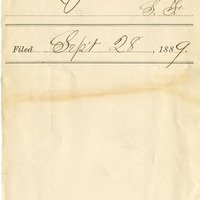 S. F.
Filed Sept 28, 1889.